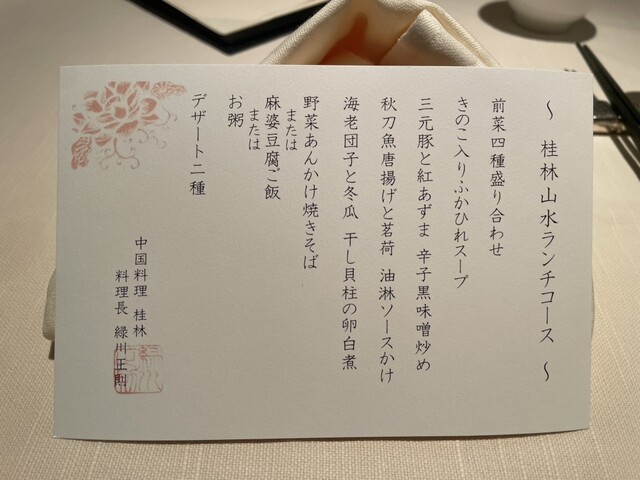 〜 桂林山水ランチコース 〜
前菜四種盛り合わせ
きのこ入りふかひれスープ
三元豚と紅あずま 辛子黒味噌炒め
秋刀魚唐揚げと茗荷 油淋ソースかけ
海老団子と冬瓜 干し貝柱の卵白煮
野菜あんかけ焼きそば
または
麻婆豆腐ご飯
または
お粥
デザート二種
中国料理 桂林
料理長 緑川 正則